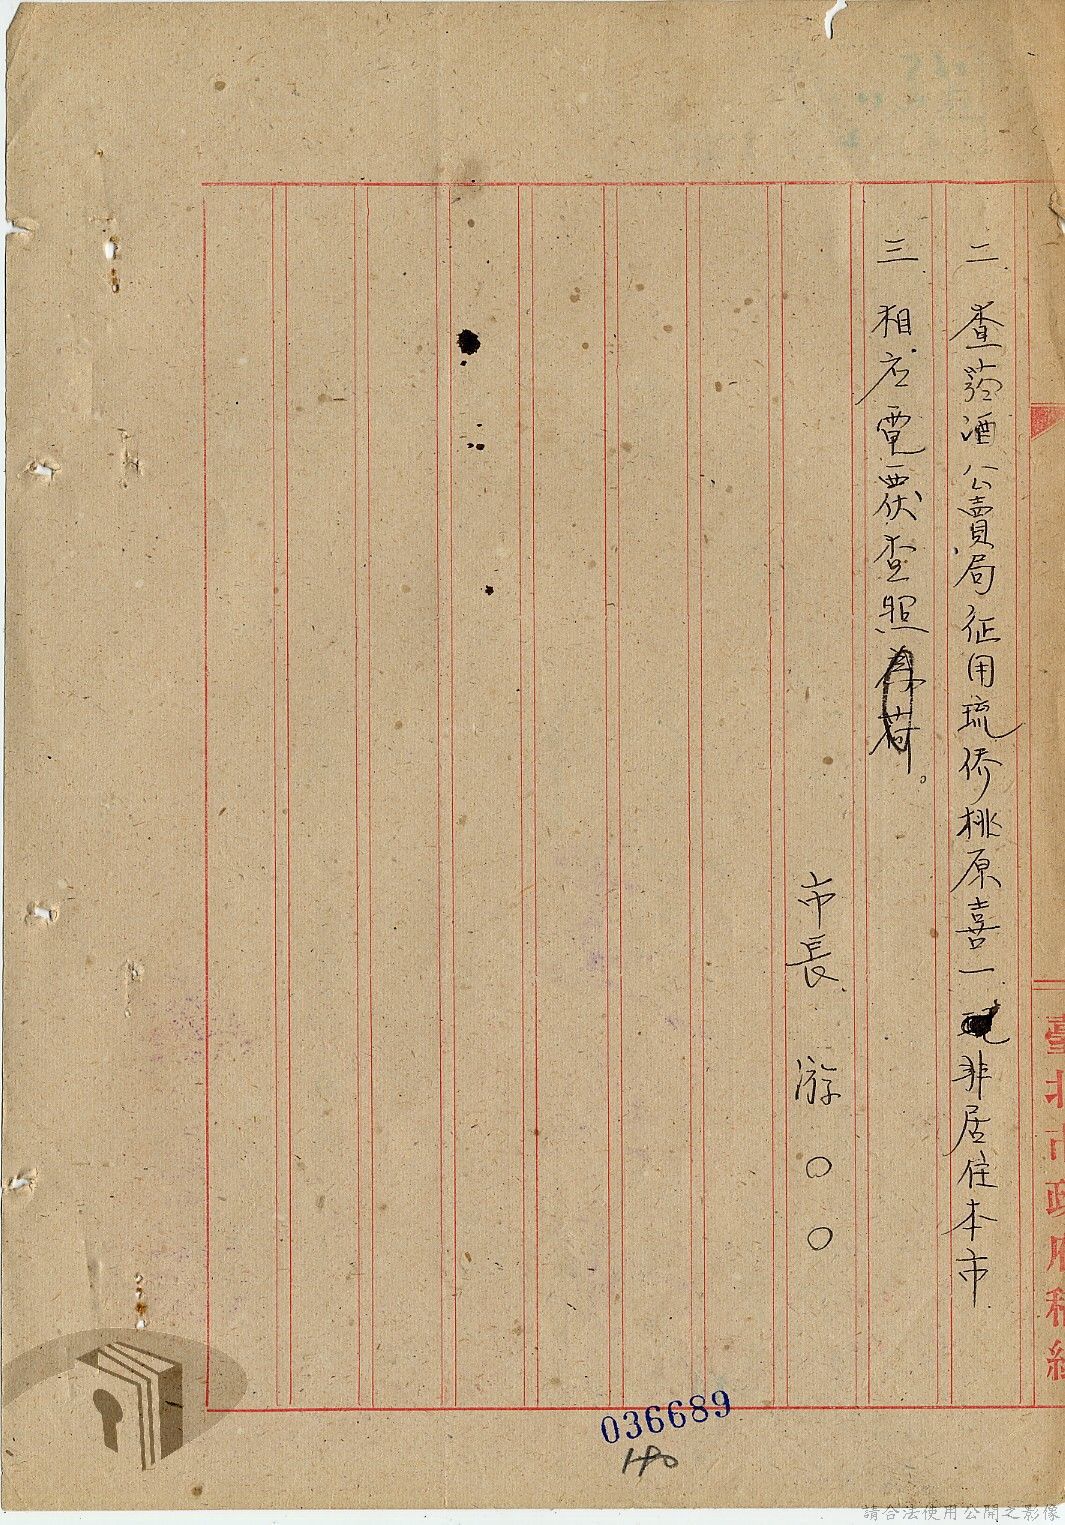 臺北市政府稿紙
二 查菸酒公賣局征用琉侨桃原喜一現非居住本市
三 相应電覆查照
市長 游○○
036689
180
請合法使用公開之影像